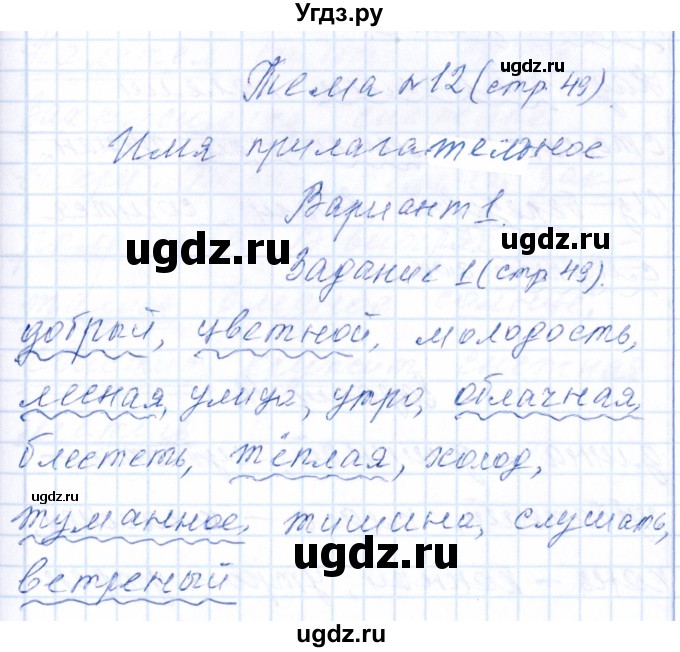 Угдз.ру
ugdz.ru
Тема №12 (стр 49)
Имя прилагательное
Вариант 1.
ugdz.ru
Задание 1 (стр 49).
добрый, цветной, молодость,
лесная, улица, утро, облачная,
блестеть, тёплая, холод,
ugdz.ru
туманное, тишина, слушать,
ugdz.ru
ветреный
ugdz.ru